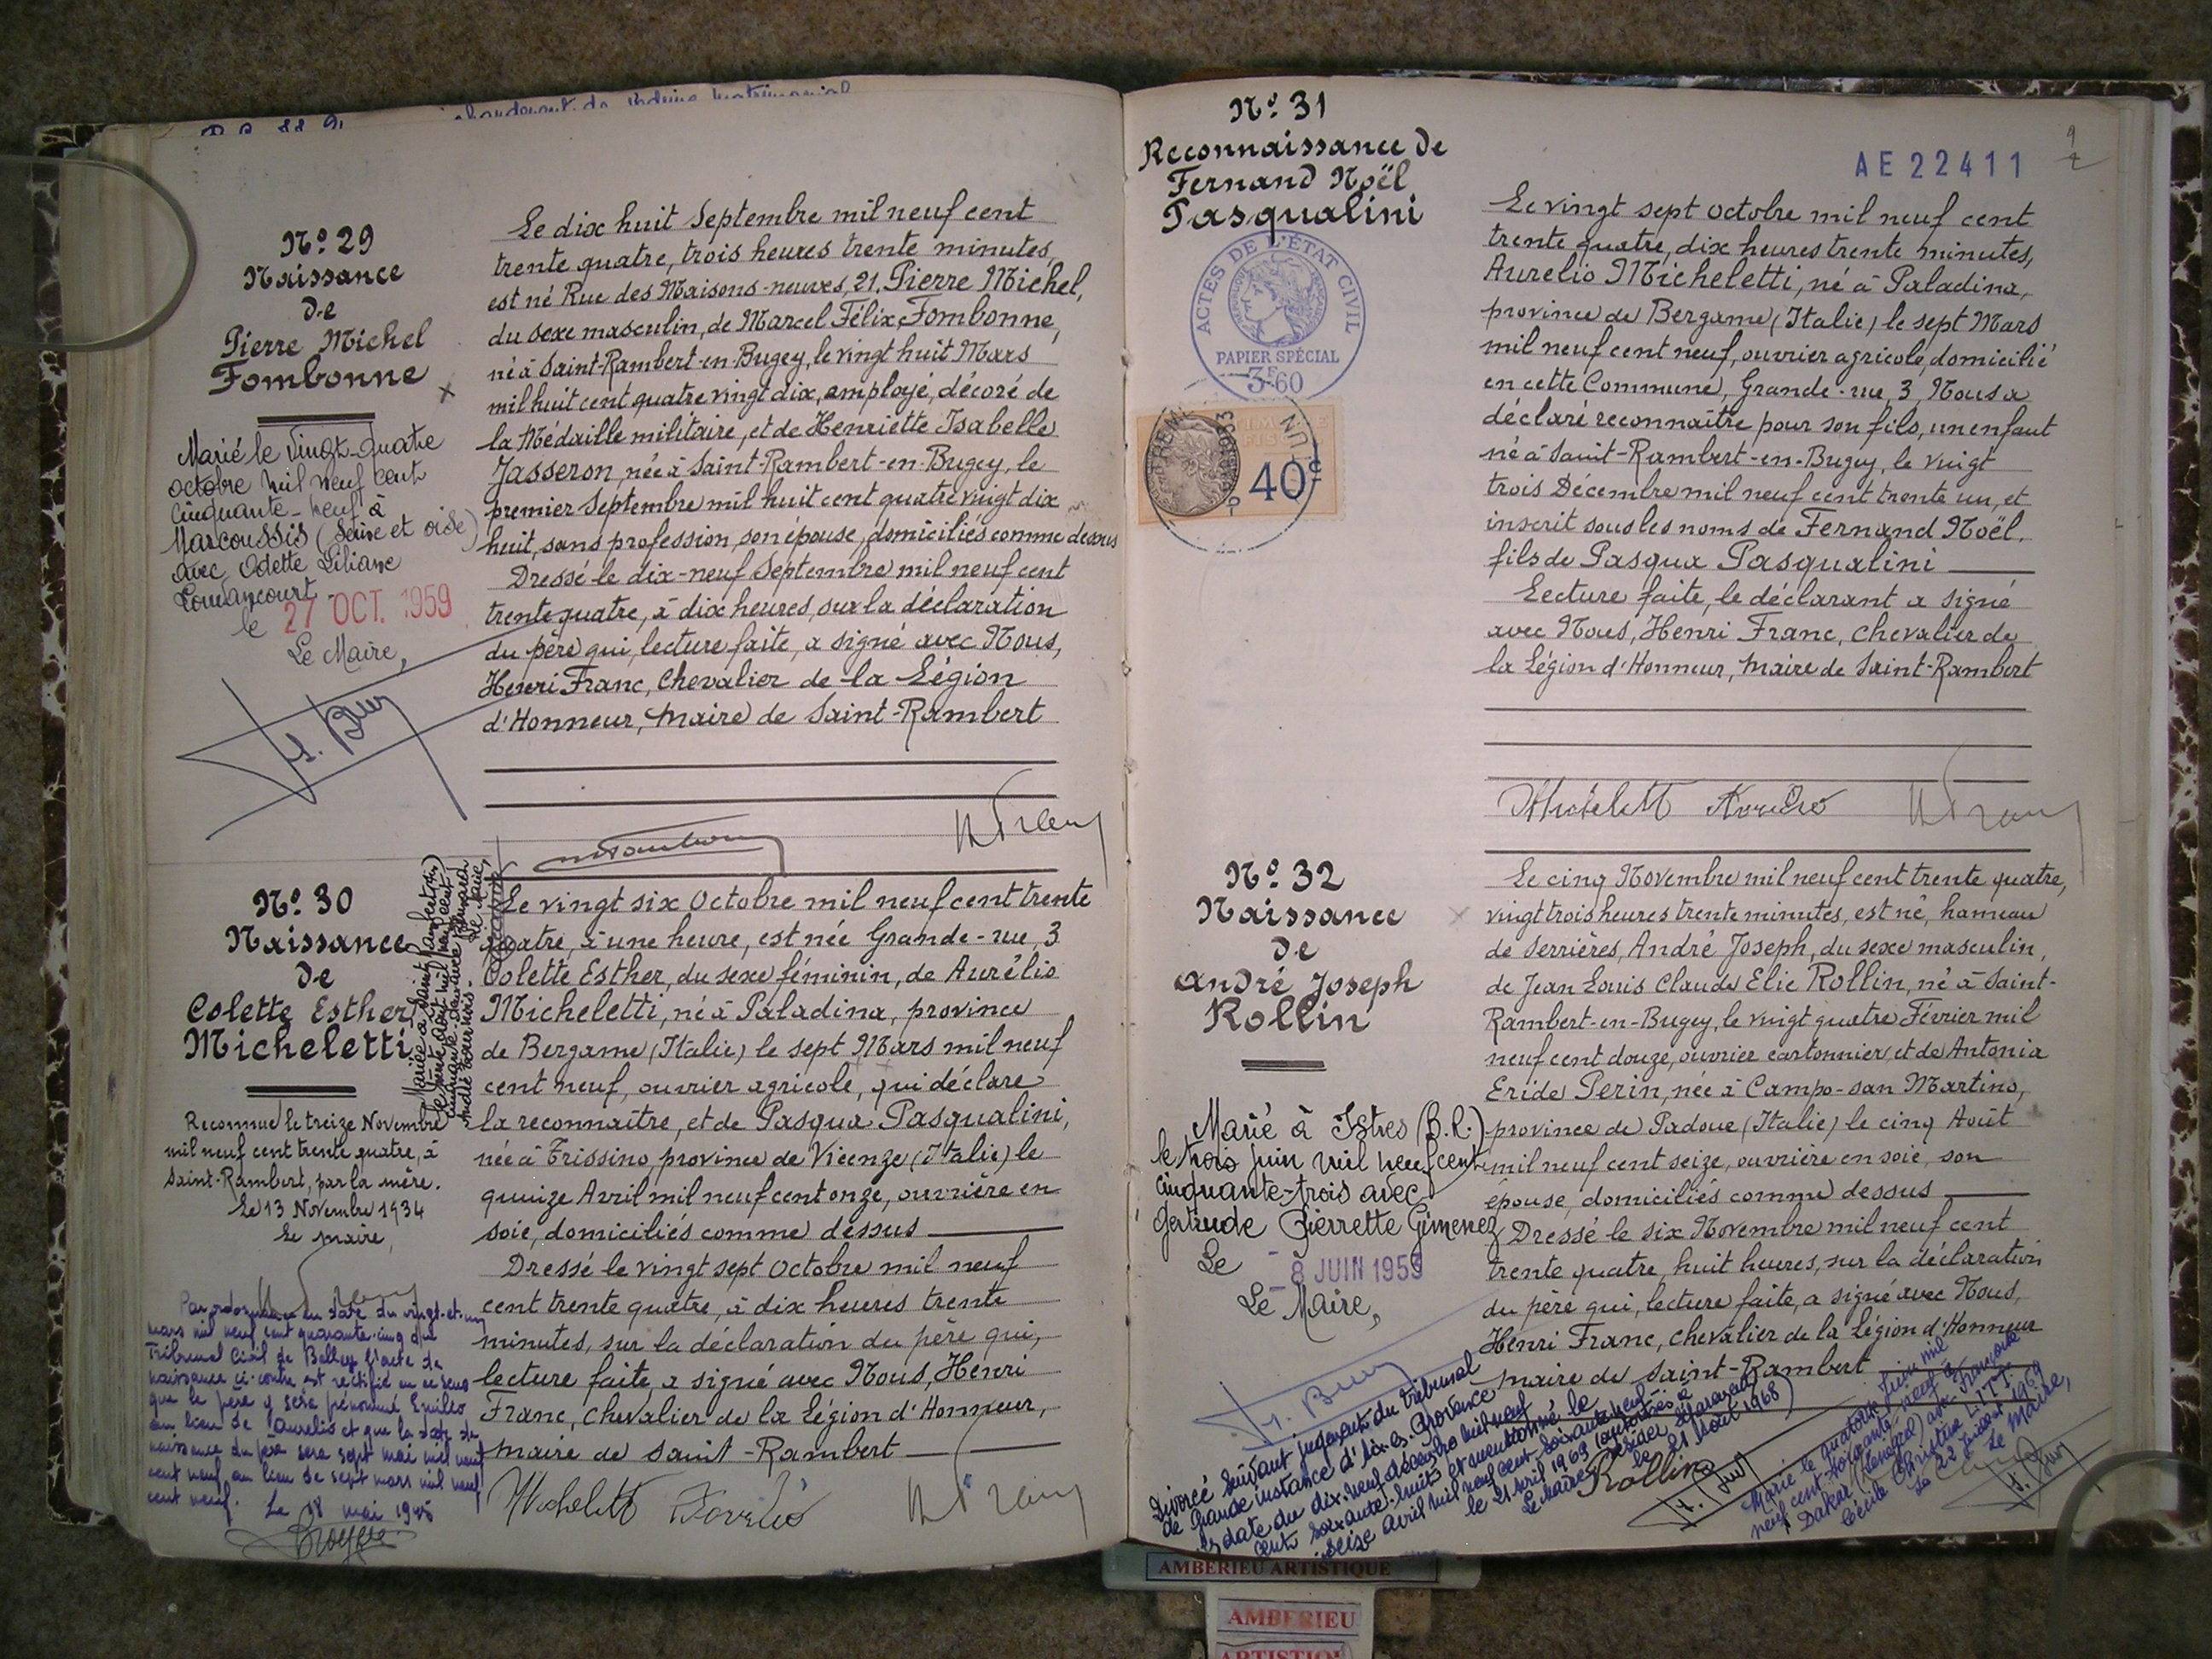 chargement de régime matrimonial
Nº 29
Naissance
de
Pierre Michel
Fombonne
Marié le vingt-quatre
octobre mil neuf cent
cinquante-neuf à
Marcoussis (Seine et oise)
avec Odette Liliane
le 27 OCT. 1959
Le Maire,
Le dix huit Septembre mil neuf cent
trente quatre, trois heures trente minutes,
est né Rue des Maisons-neuves, 21, Pierre Michel,
du sexe masculin, de Marcel Félix Fombonne,
né à Saint-Rambert-en-Bugey, le vingt huit Mars
mil huit cent quatre vingt dix, employé, décoré de
la Médaille militaire, et de Henriette Isabelle
Jasseron, née à Saint-Rambert-en-Bugey, le
premier Septembre mil huit cent quatre vingt dix
huit, sans profession, son épouse, domiciliés comme dessus
Dressé le dix-neuf Septembre mil neuf cent
trente quatre, à dix heures, sur la déclaration
du père qui, lecture faite, a signé avec Nous,
Henri Franc, Chevalier de la Légion
d'Honneur, Maire de Saint-Rambert
Nº 30
Naissance
de
Colette Esther
Micheletti
Mariée à Saint Rambert (Ain)
le sept août mil neuf cent
cinquante-deux avec Bernard
André
Le Maire,
Reconnue le treize Novembre
mil neuf cent trente quatre, à
Saint-Rambert, par la mère.
Le 13 Novembre 1934
Le maire,
Par ordonnance en date du vingt-et-un
mars mil neuf cent quarante-cinq du
Tribunal Civil de Belley l'acte de
naissance ci-contre est rectifié en ce sens
que le père y sera prénommé Emilio
au lieu de Aurelio et que la date de
naissance du père sera sept mai mil neuf
cent neuf au lieu de sept mars mil neuf
cent neuf. Le 18 mai 1945
Le vingt six Octobre mil neuf cent trente
quatre, à une heure, est née Grande-rue, 3
Colette Esther, du sexe féminin, de Aurélio
Micheletti, né à Paladina, province
de Bergame (Italie) le sept Mars mil neuf
cent neuf, ouvrier agricole, qui déclare
la reconnaître, et de Pasqua Pasqualini,
née à Trissino, province de Vicenze (Italie) le
quinze Avril mil neuf cent onze, ouvrière en
soie, domiciliés comme dessus
Dressé le vingt sept Octobre mil neuf
cent trente quatre, à dix heures trente
minutes, sur la déclaration du père qui,
lecture faite, a signé avec Nous, Henri
Franc, chevalier de la Légion d'Honneur,
maire de Saint-Rambert
Nº 31
Reconnaissance de
Fernand Noël
Pasqualini
ACTES DE L'ÉTAT CIVIL
PAPIER SPÉCIAL
3F60
40c
AE 22411
Le vingt sept Octobre mil neuf cent
trente quatre, dix heures trente minutes,
Aurelio Micheletti, né à Paladina,
province de Bergame (Italie) le sept Mars
mil neuf cent neuf, ouvrier agricole, domicilié
en cette Commune, Grande-rue, 3, Nous a
déclaré reconnaître pour son fils, un enfant
né à Saint-Rambert-en-Bugey, le vingt
trois Décembre mil neuf cent trente un, et
inscrit sous les noms de Fernand Noël,
fils de Pasqua Pasqualini
Lecture faite, le déclarant a signé
avec Nous, Henri Franc, Chevalier de
la Légion d'Honneur, Maire de Saint-Rambert
Nº 32
Naissance
de
André Joseph
Rollin
Marié à Istres (B.R.)
le trois juin mil neuf cent
cinquante-trois avec
Gertrude Pierrette Gimenez
Le - 8 JUIN 1953
Le Maire,
Le cinq Novembre mil neuf cent trente quatre,
vingt trois heures trente minutes, est né, hameau
de Serrières, André Joseph, du sexe masculin,
de Jean Louis Claude Elie Rollin, né à Saint-
Rambert-en-Bugey, le vingt quatre Février mil
neuf cent douze, ouvrier cartonnier, et de Antonia
Eride Perin, née à Campo-san Martino,
province de Padoue (Italie) le cinq Août
mil neuf cent seize, ouvrière en soie, son
épouse, domiciliés comme dessus
Dressé le six Novembre mil neuf cent
trente quatre, huit heures, sur la déclaration
du père qui, lecture faite, a signé avec Nous,
Henri Franc, chevalier de la Légion d'Honneur
maire de Saint-Rambert
Rollin
Divorcé suivant jugement du tribunal
de Grande instance d'Aix-en-Provence
en date du dix-neuf décembre mil neuf
cent soixante-huit et mentionné le
seize avril mil neuf cent soixante neuf
le 21 avril 1969 (autorisés à
résider séparément
le 21 Août 1968)
Le Maire
Marié le quatorze Juin mil
neuf cent soixante-neuf à
Dakar (Sénégal) avec Françoise
Cécile Christine
Le 22 Juillet 1969
Le Maire,
AMBERIEU ARTISTIQUE
AMBERIEU
ARTISTIQUE